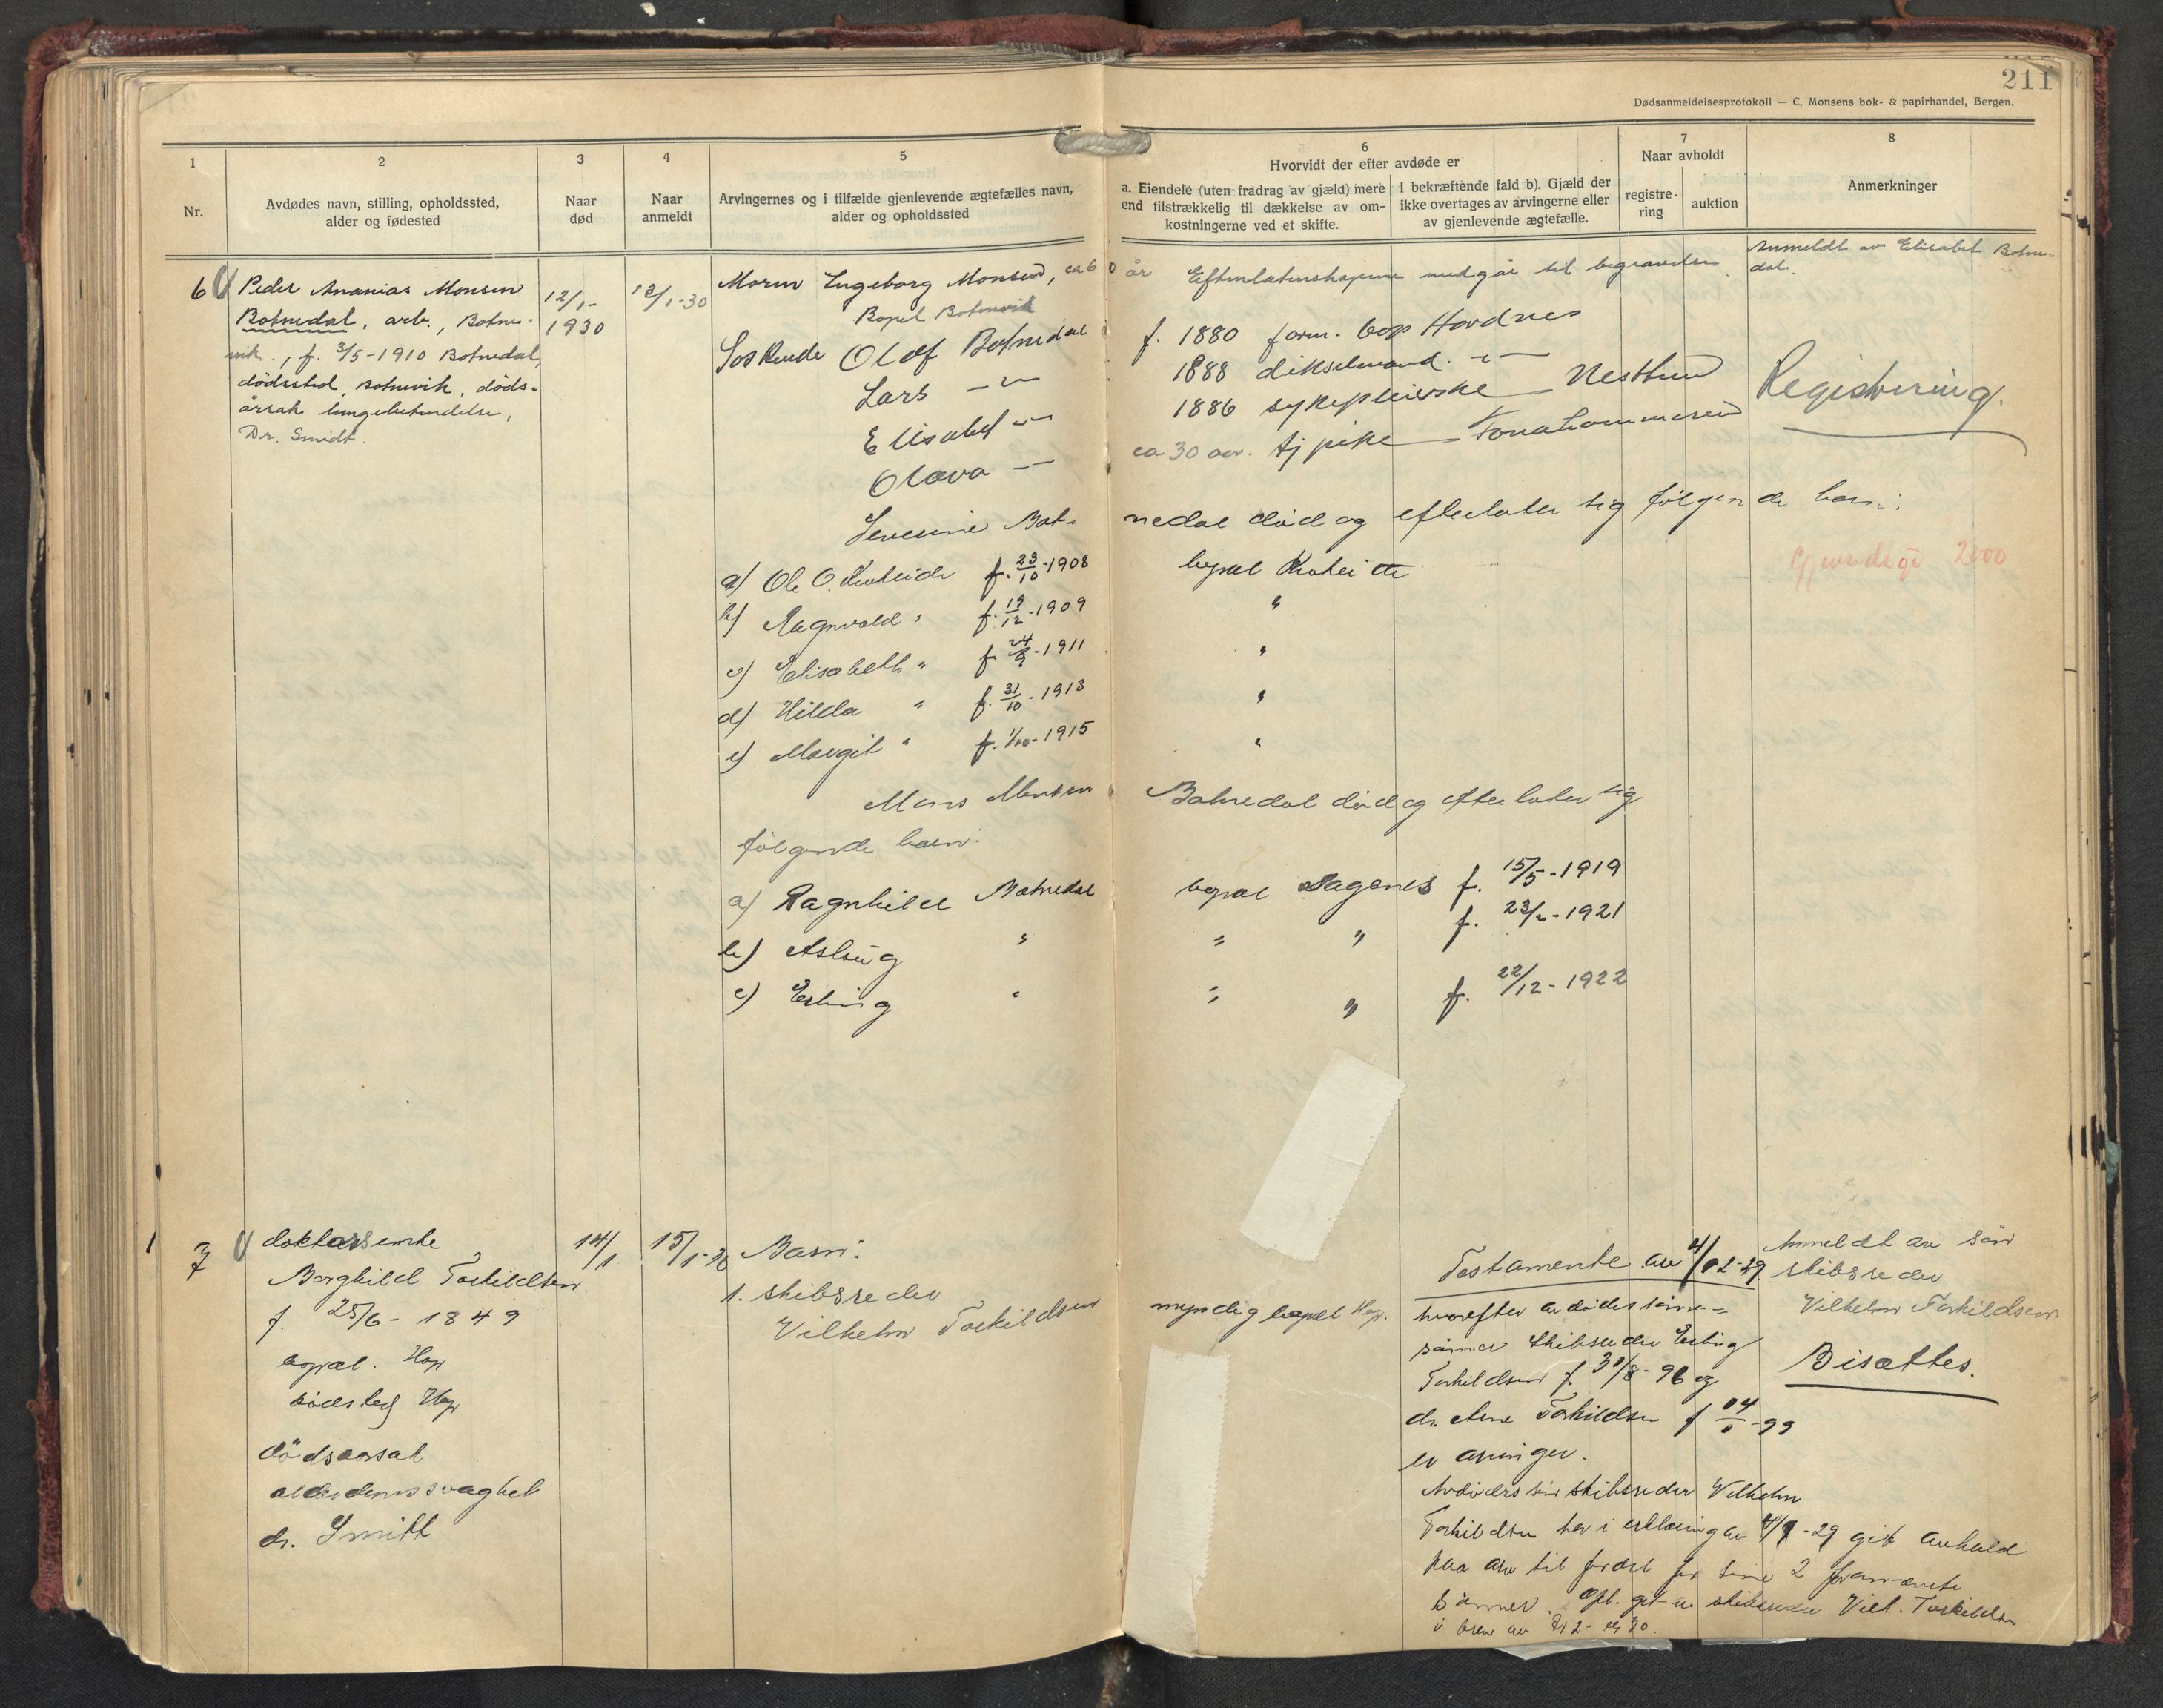 211
Dødsanmeldelsesprotokoll — C. Monsens bok- & papirhandel, Bergen.
1
2
3
4
5
6
7
8
Nr.
Avdødes navn, stilling, opholdssted,
alder og fødested
Naar
død
Naar
anmeldt
Arvingernes og i tilfælde gjenlevende ægtefælles navn,
alder og opholdssted
Hvorvidt der efter avdøde er
a. Eiendele (uten fradrag av gjæld) mere
end tilstrækkelig til dækkelse av om-
kostningerne ved et skifte.
I bekræftende fald b). Gjæld der
ikke overtages av arvingerne eller
av gjenlevende ægtefælle.
Naar avholdt
registre-
ring
auktion
Anmerkninger
6
Peder Ananias Monsen
Botnedal, arb., Botne-
vik., f. 3/5-1910 Botnedal,
dödssted Botnevik, döds-
årsak lungebetendelse,
Dr. Smidt.
12/1-
1930
13/1-30
Moren Ingeborg Monsen, ca 60 år
Bopel Botnevik
Efterlatenskapene medgår til begravelse.
Anmeldt av Elisabet Botne-
dal.
Søskende Olaf Botnedal f. 1880 form. bop Hordnes
Lars -"- 1888 dikselmand. -"-
Elisabet -"- 1886 sykepleierske Nesttun
Olava -"- ca 30 aar. tj pike Fanahammeren
Registrering.
Severine Botnedal død og efterlater sig følgende barn:
a) Ole O. Krokeide f. 23/10-1908 bopæl Krokeide
Gjenstdsgd 2000
b) Ragnvald " f. 19/12-1909 "
c) Elisabeth " f. 24/9-1911 "
d) Hilda " f. 31/10-1913 "
e) Margit " f. 1/10-1915 "
Mons Monsen Botnedal død og efterlater sig
følgende barn:
a) Ragnhild Botnedal bopæl Dagenes f. 15/5-1919
b) Aslaug " " " f. 23/2-1921
c) Erling " " " f. 22/12-1922
7
doktorsenke
Borghild Torkildsen
f. 25/6-1849
bopæl. Hop
dödsted Hop
Dödsaarsak
alderdomssvaghet
dr. Smitt
14/1
15/1-30
Barn:
1. skibsreder
Vilhelm Torkildsen
myndig bopæl Hop.
Testamente av 4/12-29.
hvorefter avdödes sönne-
sönner skibsreder Erling
Torkildsen f. 31/8-96 og
dr. Arne Torkildsen f 04 - 99
er arvinger.
Avdödes sön skibsreder Vilhelm
Torkildsen har i erklæring av 4/9-29 git avkald
paa arv til fordel for sine 2 forannævnte
sønner. Opl. git av skibsreder Vilh. Torkildsen
i brev av
Anmeldt av sön
skibsreder
Vilhelm Torkildsen
Bisættes.